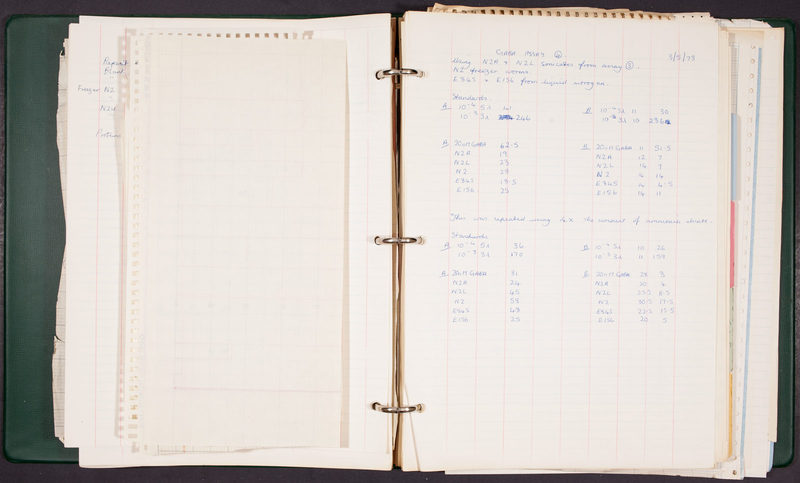 Repeat
Blank
Freezer N2
N2A
GABA ASSAY ④ 3/5/73
Using N2A + N2L Sonicates from assay ③.
N2 freezer worms.
E345 + E156 from liquid nitrogen.
Standards.
A. 10⁻⁴ 5λ
10⁻³ 5λ 246
B. 10⁻⁴ 5λ 11 30
10⁻³ 5λ 10 236
A. 20mM GABA 62.5
N2A 19
N2L 23
N2 29
E345 19.5
E156 25
B. 20mM GABA 11 51.5
N2A 12 7
N2L 14 7
N2 14
E345 4.5
E156 14 11
This was repeated using 4x the amount of ammonia eluate.
Standards
A. 10⁻⁴ 5λ 36
10⁻³ 5λ 170
B. 10⁻⁴ 5λ 10 26
10⁻³ 5λ 11 159
A. 20mM GABA 31
N2A 24
N2L 45
N2 53
E345 43
E156 25
B. 20mM GABA 28 3
N2A 20 4
N2L
N2 17.5
E345
E156 20 5